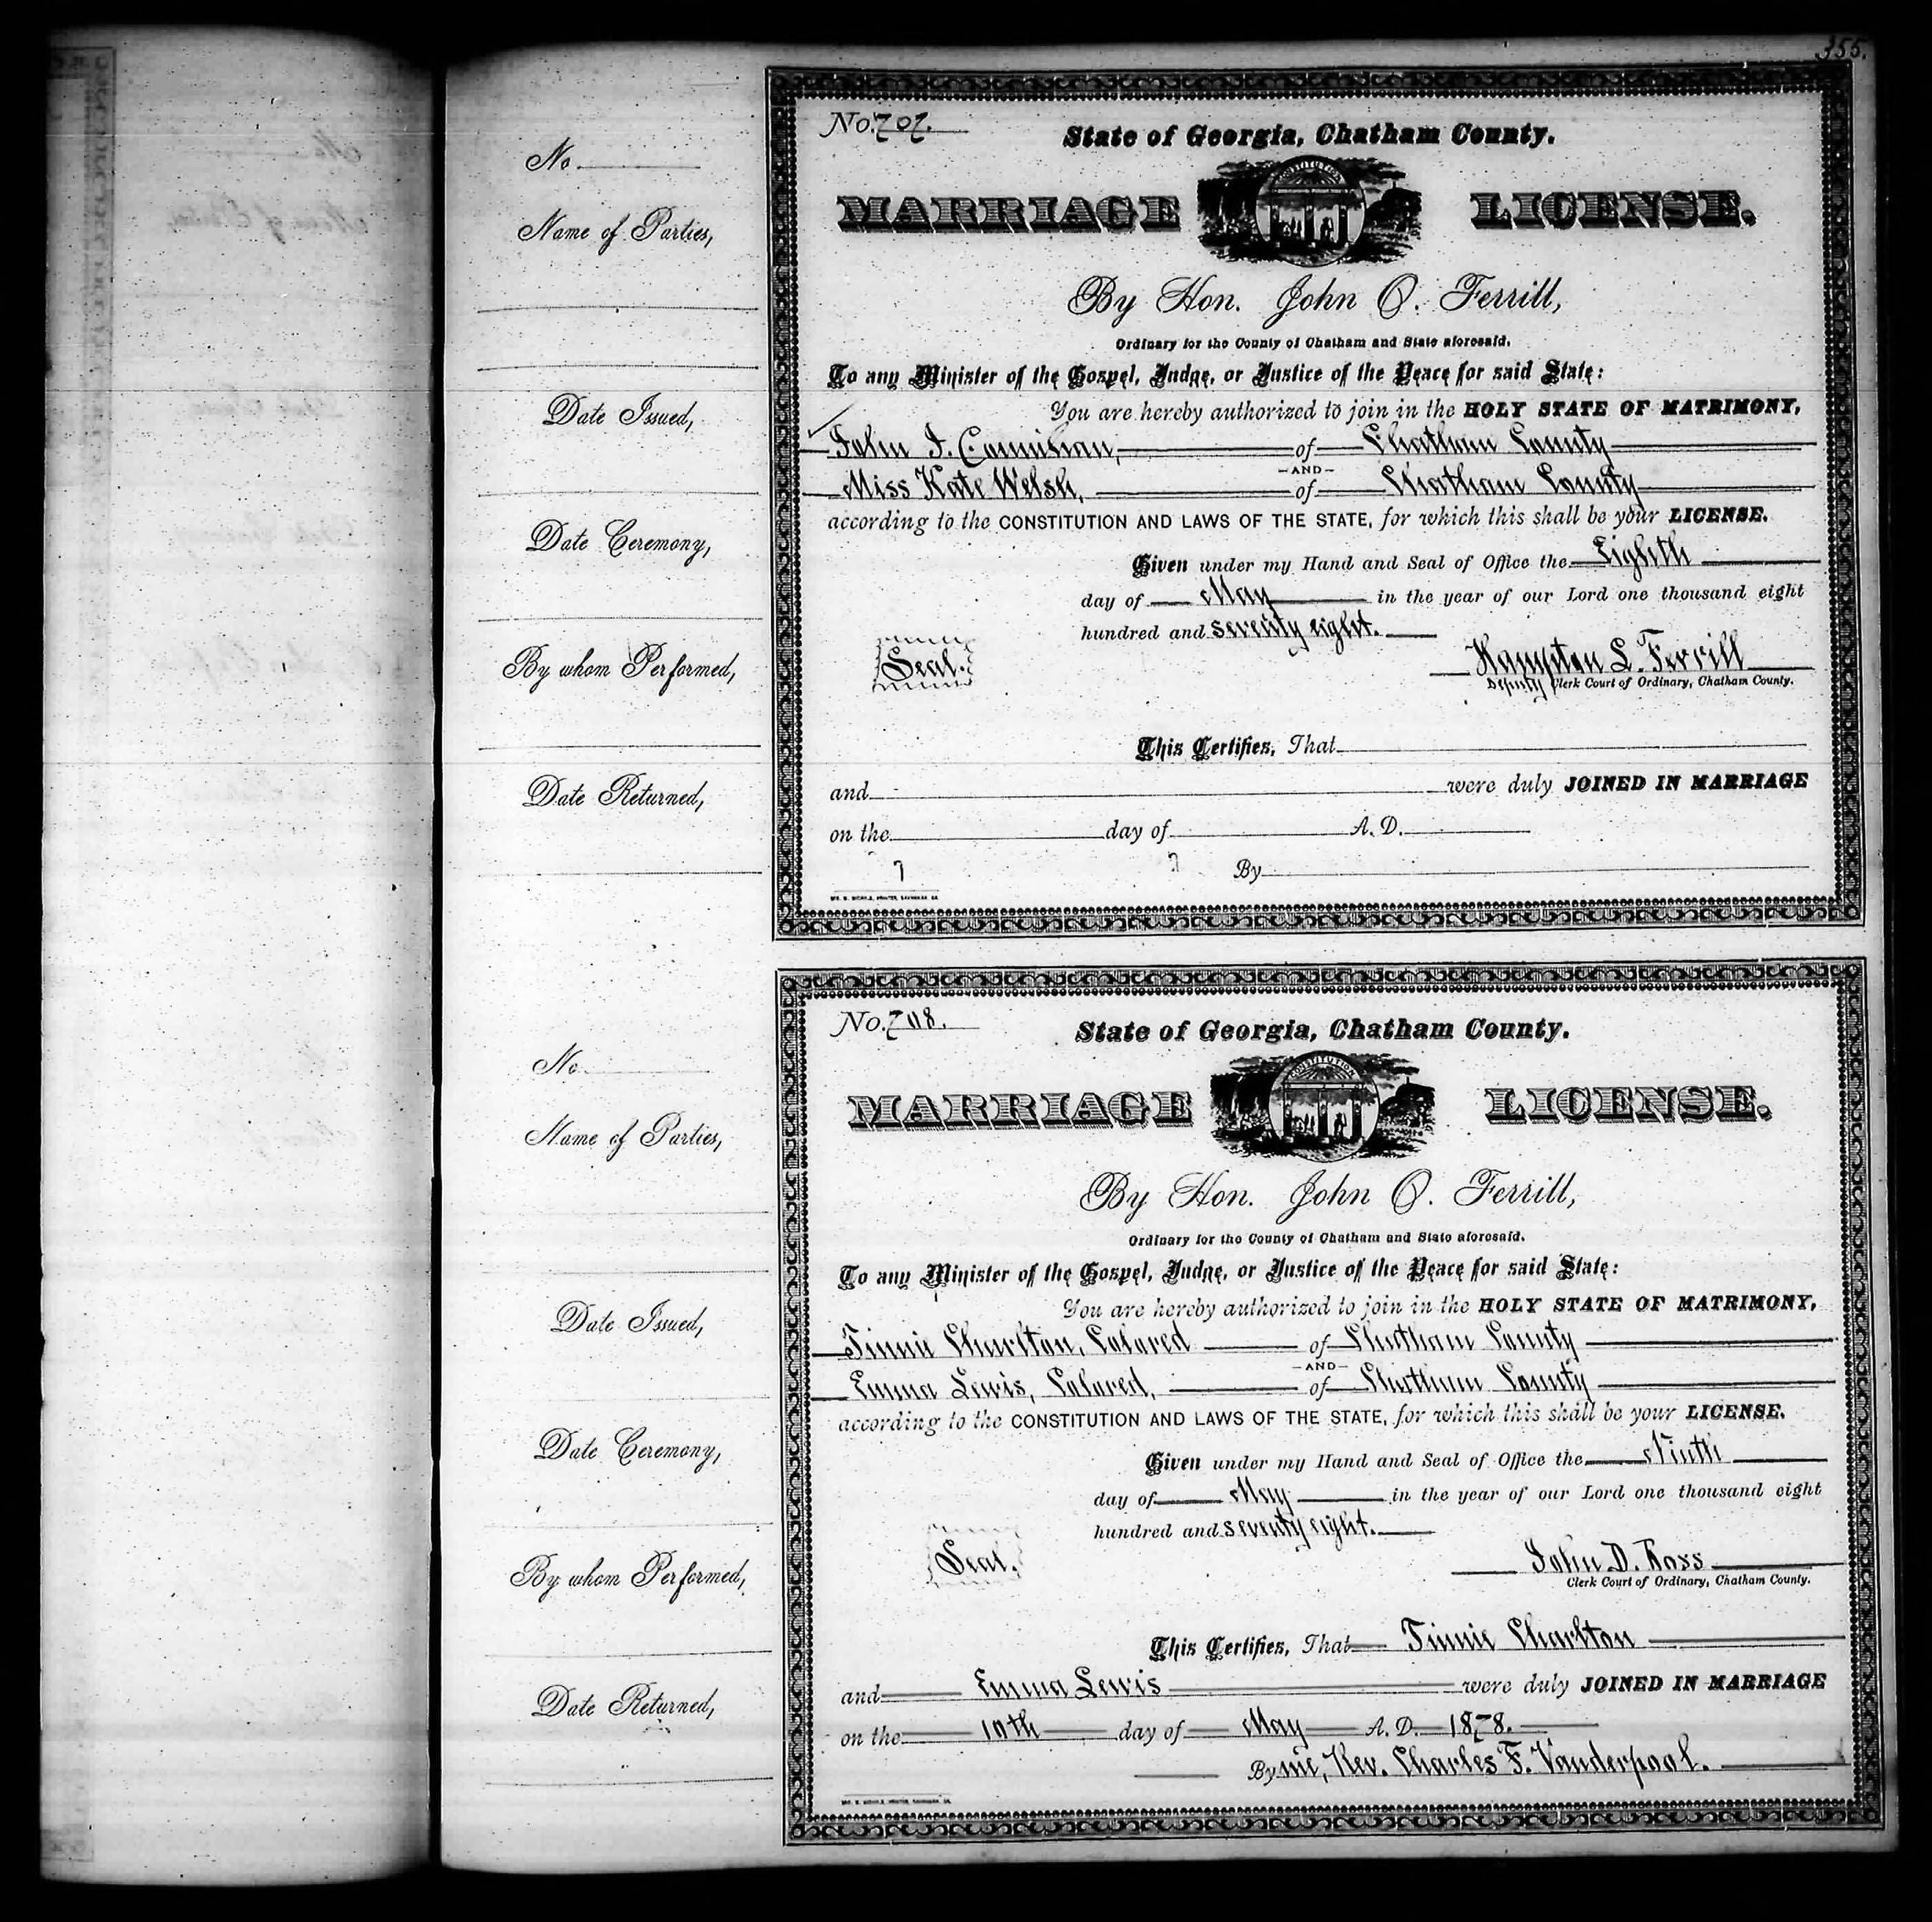 355.
No.
Name of Parties,
Date Issued,
Date Ceremony,
By whom Performed,
Date Returned,
No. 707.
State of Georgia, Chatham County.
CONSTITUTION
MARRIAGE LICENSE.
By Hon. John O. Ferrill,
Ordinary for the County of Chatham and State aforesaid.
To any Minister of the Gospel, Judge, or Justice of the Peace for said State:
You are hereby authorized to join in the HOLY STATE OF MATRIMONY,
John of Chatham County
AND
Miss Kate Welsh, of Chatham County
according to the CONSTITUTION AND LAWS OF THE STATE, for which this shall be your LICENSE.
Given under my Hand and Seal of Office the Eighth
day of May in the year of our Lord one thousand eight
hundred and seventy eight.
Seal. Hampton L. Ferrill
Deputy Clerk Court of Ordinary, Chatham County.
This Certifies, That
and were duly JOINED IN MARRIAGE
on the day of A. D.
By
No.
Name of Parties,
Date Issued,
Date Ceremony,
By whom Performed,
Date Returned,
No. 708.
State of Georgia, Chatham County.
CONSTITUTION
MARRIAGE LICENSE.
By Hon. John O. Ferrill,
Ordinary for the County of Chatham and State aforesaid.
To any Minister of the Gospel, Judge, or Justice of the Peace for said State:
You are hereby authorized to join in the HOLY STATE OF MATRIMONY,
Finnie Charlton, Colored of Chatham County
AND
Emma Lewis, Colored, of Chatham County
according to the CONSTITUTION AND LAWS OF THE STATE, for which this shall be your LICENSE.
Given under my Hand and Seal of Office the Ninth
day of May in the year of our Lord one thousand eight
hundred and seventy eight.
Seal. John D. Ross
Clerk Court of Ordinary, Chatham County.
This Certifies, That Finnie Charlton
and Emma Lewis were duly JOINED IN MARRIAGE
on the 10th day of May A. D. 1878.
By me, Rev. Charles F. Vanderpool.